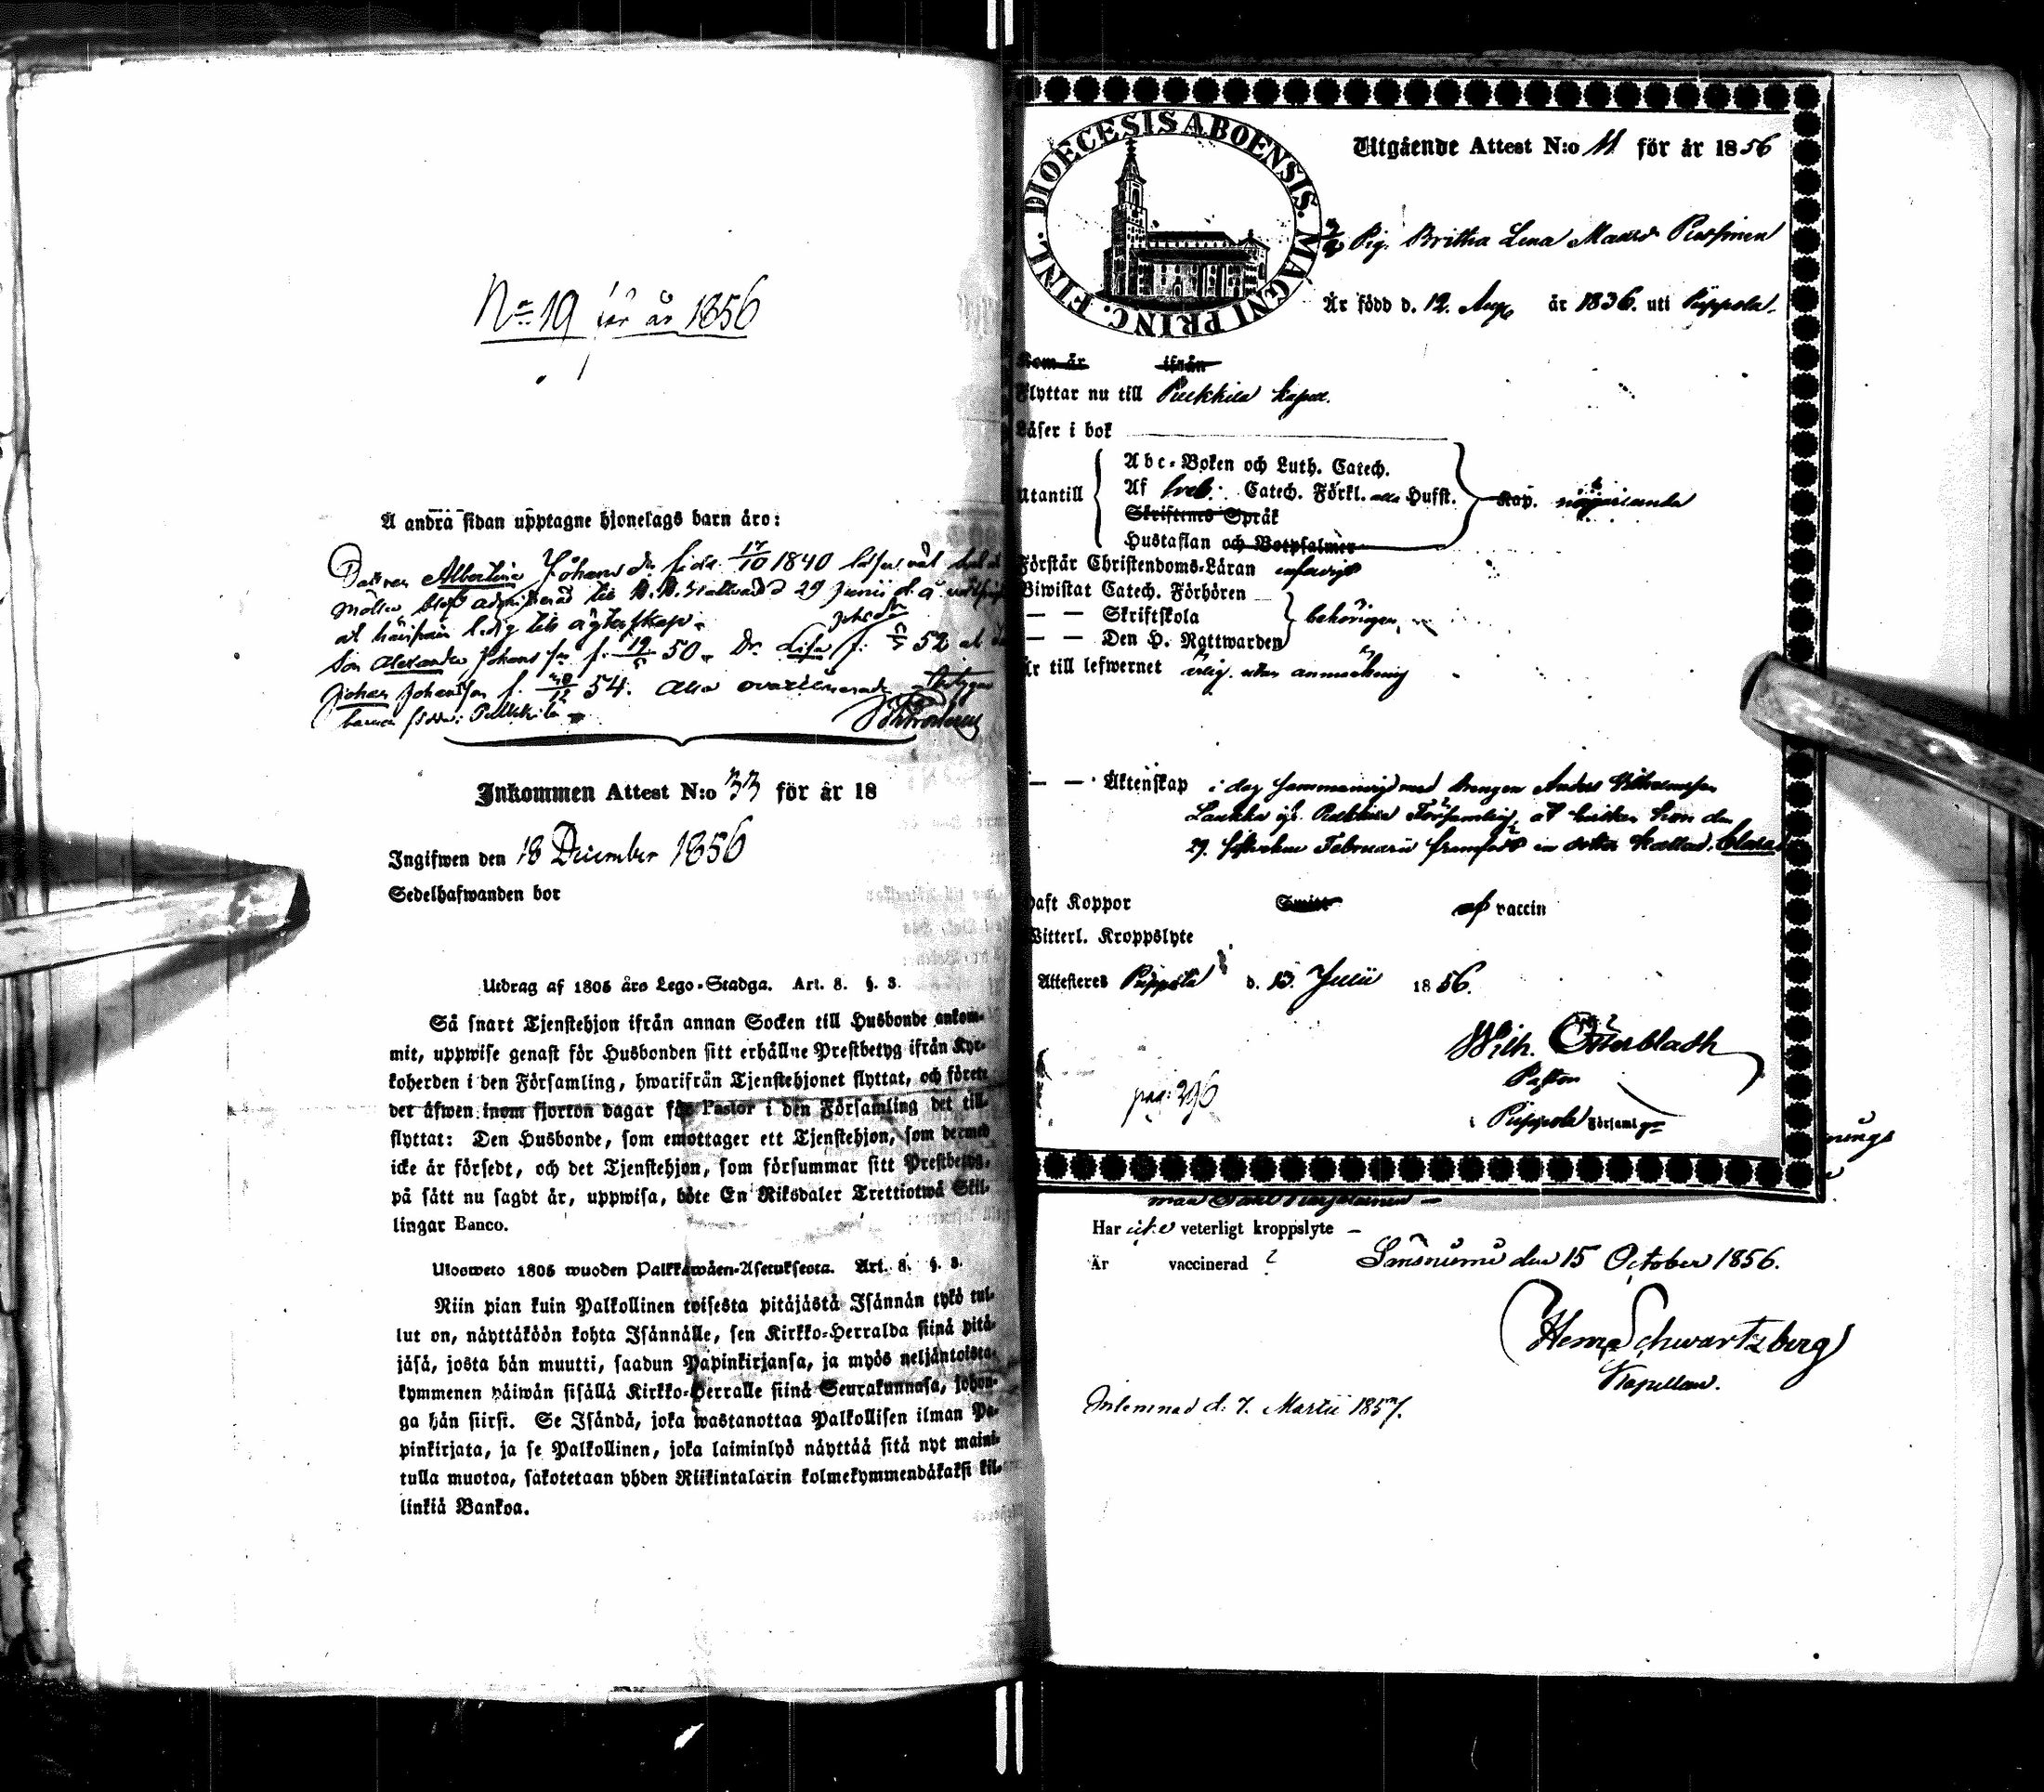 No 19 för år 1856
Å andra sidan upptagne hjonelags barn äro:
Dottren Albertina Johans dr född 17/10 1840 läser väl
29 Junii d. å.
ledig till ägtenskap.
Son Alexander Johans son f. 50. Dr. Lisa f. 52
Johan Johansson f. 12 54. Alla ovaccinerade betygar
barnen födde i Pulkkila
Inkommen Attest N:o 33 för år 18
Ingifwen den 18 December 1856
Sedelhafwanden bor
Utdrag af 1805 års Lego-Stadga. Art. 8. §. 3.
Så snart Tjenstehjon ifrån annan Socken till Husbonde ankom-
mit, uppwise genast för Husbonden sitt erhållne Prestbetyg ifrån Kyr-
koherden i den Församling, hwarifrån Tjenstehjonet flyttat, och förete
det äfwen inom fjorton dagar för Pastor i den Församling det till-
flyttat: Den Husbonde, som emottager ett Tjenstehjon, som dermed
icke är försedt, och det Tjenstehjon, som försummar sitt Prestbetyg,
på sätt nu sagdt är, uppwisa, böte En Riksdaler Trettiotwå Skil-
lingar Banco.
Ulosweto 1805 wuoden Palkkawäen-Asetuksesta. Art. 8. §. 3.
Niin pian kuin Palkollinen toisesta pitäjästä Isännän tykö tul-
lut on, näyttäköön kohta Isännälle, sen Kirkko-Herralda siinä pitä-
jäsä, josta hän muutti, saadun Papinkirjansa, ja myös neljäntoista-
kymmenen päiwän sisällä Kirkko-Herralle siinä Seurakunnasa, johon-
ga hän siirsi. Se Isändä, joka wastanottaa Palkollisen ilman Pa-
pinkirjata, ja se Palkollinen, joka laiminlyö näyttää sitä nyt maini-
tulla muotoa, sakotetaan yhden Riikintalarin kolmekymmendäkaksi kil-
linkiä Bankoa.
DIOECESIS ABOENSIS. MAGNI PRINC. FINL.
Utgående Attest N:o 11 för år 1856
Pig. Britha Lena Matsd. Pursinen
Är född d. 12. Aug. år 1836. uti Piippola.
Kom år ifrån
Flyttar nu till Pulkkila kapell.
Läser i bok
Utantill
Abc-Boken och Luth. Catech.
Af Sveb. Catech. Förkl. alla Hufst.
Skriftenes Språk
Hustaflan och Botpsalmer
Kap. nöjaktande
Förstår Christendoms-Läran enfaldigt
Biwistat Catech. Förhören
— — Skriftskola
— — Den H. Nattwarden
behörigen
Är till lefwernet ärlig utan anmärkning
— — Äktenskap i dag sammanvigd med drengen Anders Wilhelmsson
Laukka ifr. Pulkkila Församling, at kyrktas hon den
29. sistledne Februarii framfödt en dotter kallad: Clara
Haft Koppor Smitt af vaccin
Witterl. Kroppslyte
Attesteres Piippola d. 13. Julii 1856.
Wilh. Österbladh
Pastor
i Piippola Församlgn
pag: 296
Har icke veterligt kroppslyte —
Är vaccinerad ?
den 15 October 1856.
Hemr Schwartzberg
Kapellan.
Inlemnad d. 7. Martii 1857.